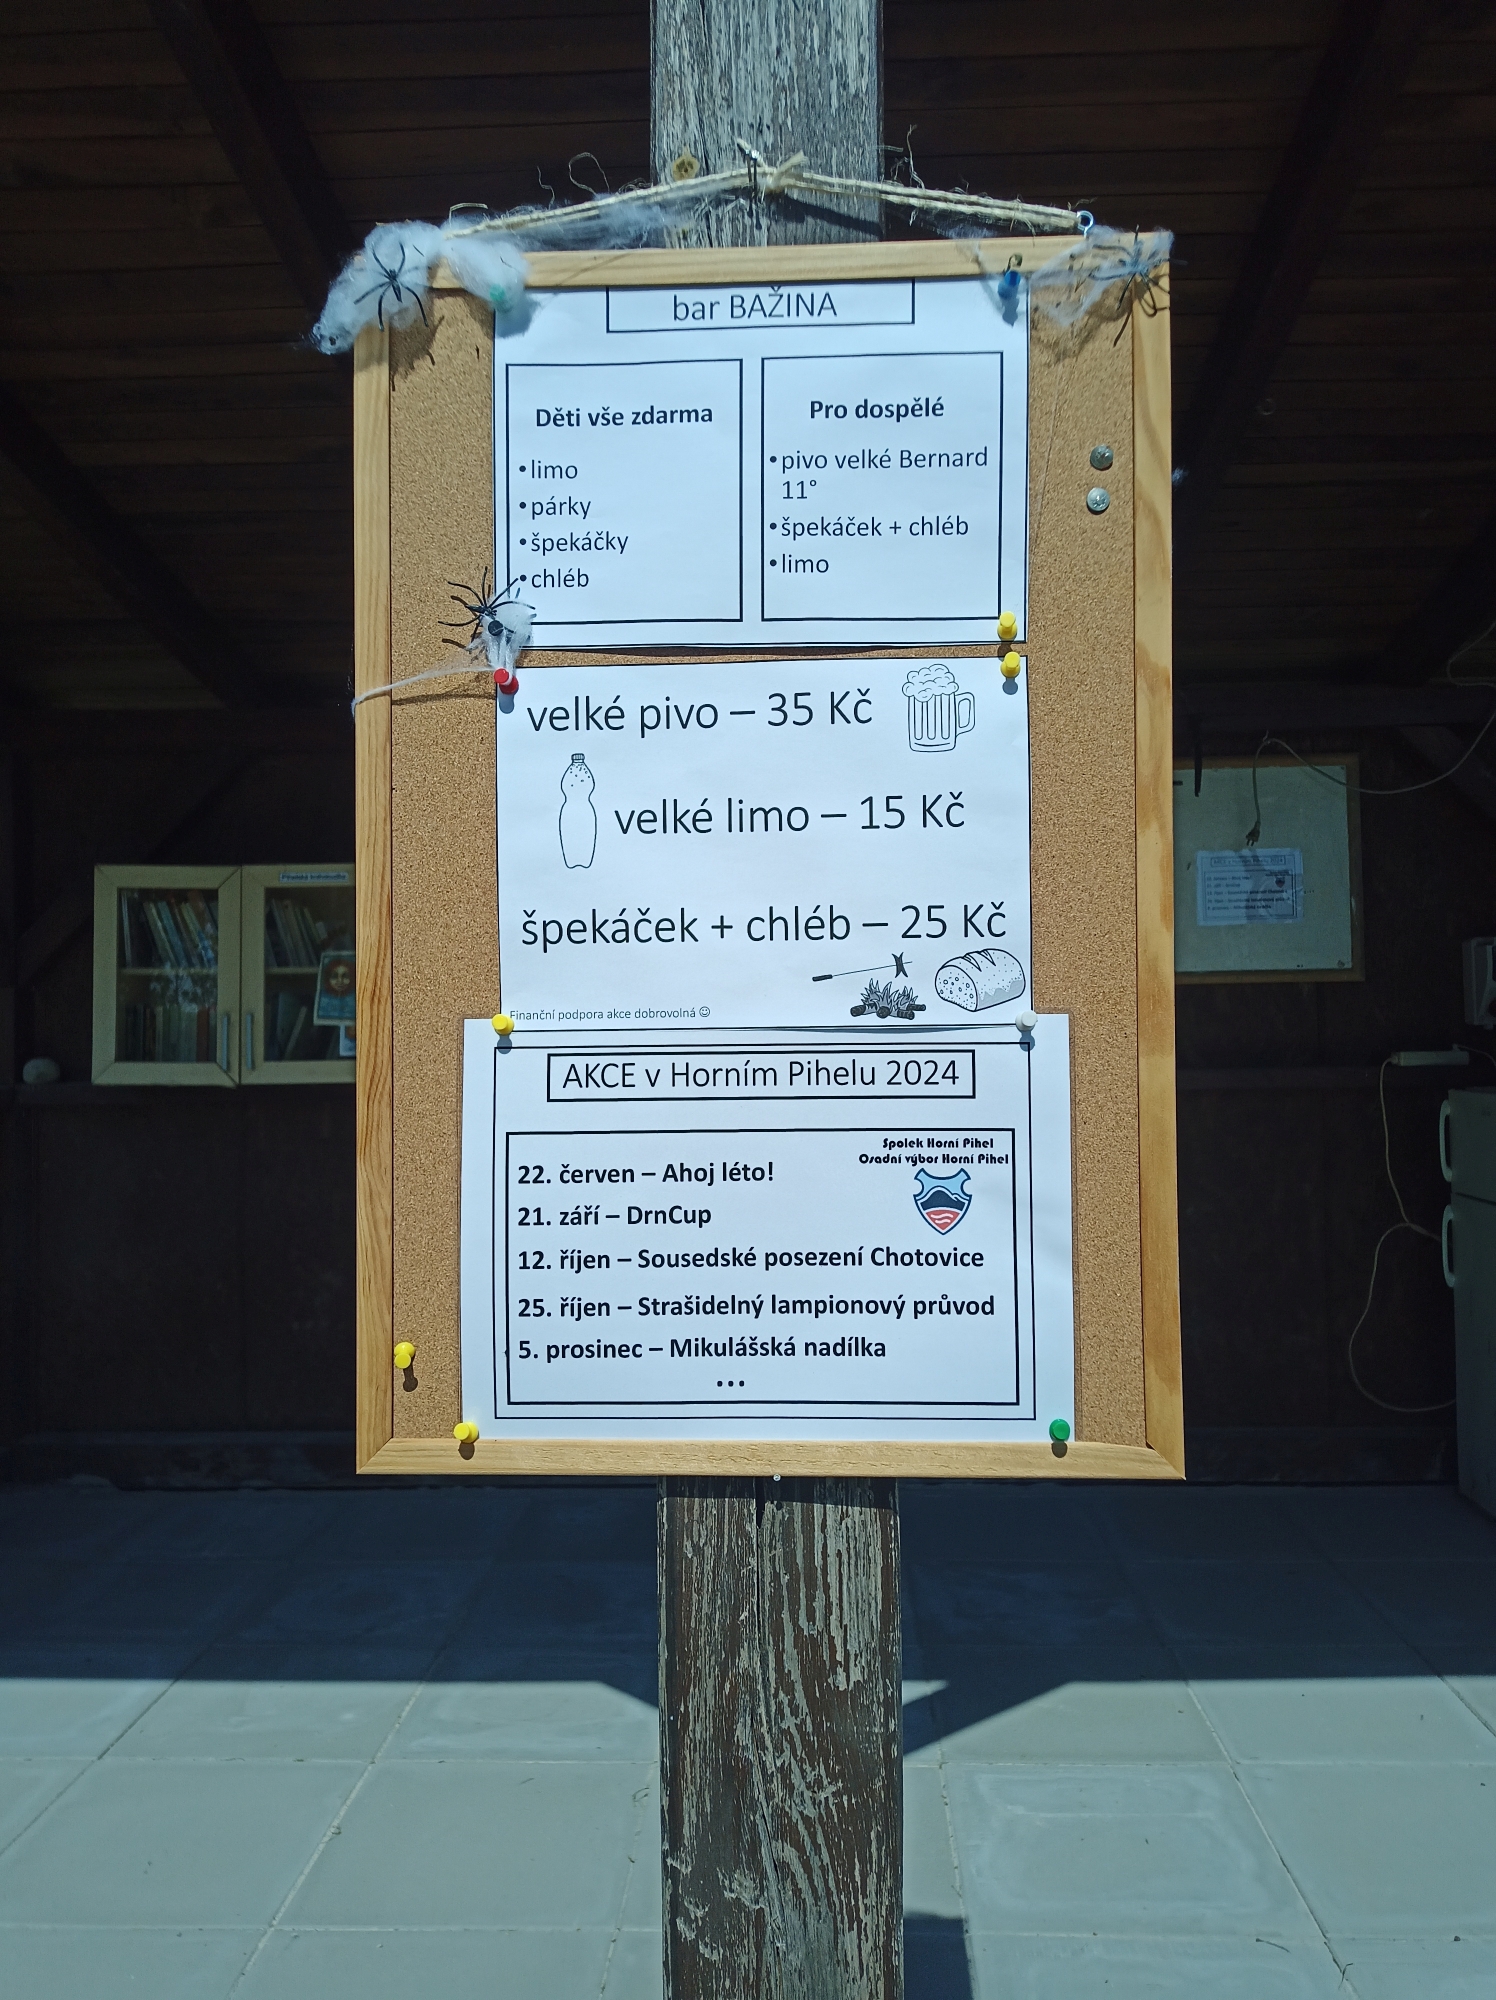 bar BAŽINA
Děti vše zdarma
• limo
• párky
• špekáčky
• chléb
Pro dospělé
• pivo velké Bernard
11°
• špekáček + chléb
• limo
velké pivo – 35 Kč
velké limo – 15 Kč
špekáček + chléb – 25 Kč
Finanční podpora akce dobrovolná ☺
AKCE v Horním Pihelu 2024
Spolek Horní Pihel
Osadní výbor Horní Pihel
22. červen – Ahoj léto!
21. září – DrnCup
12. říjen – Sousedské posezení Chotovice
25. říjen – Strašidelný lampionový průvod
5. prosinec – Mikulášská nadílka
...